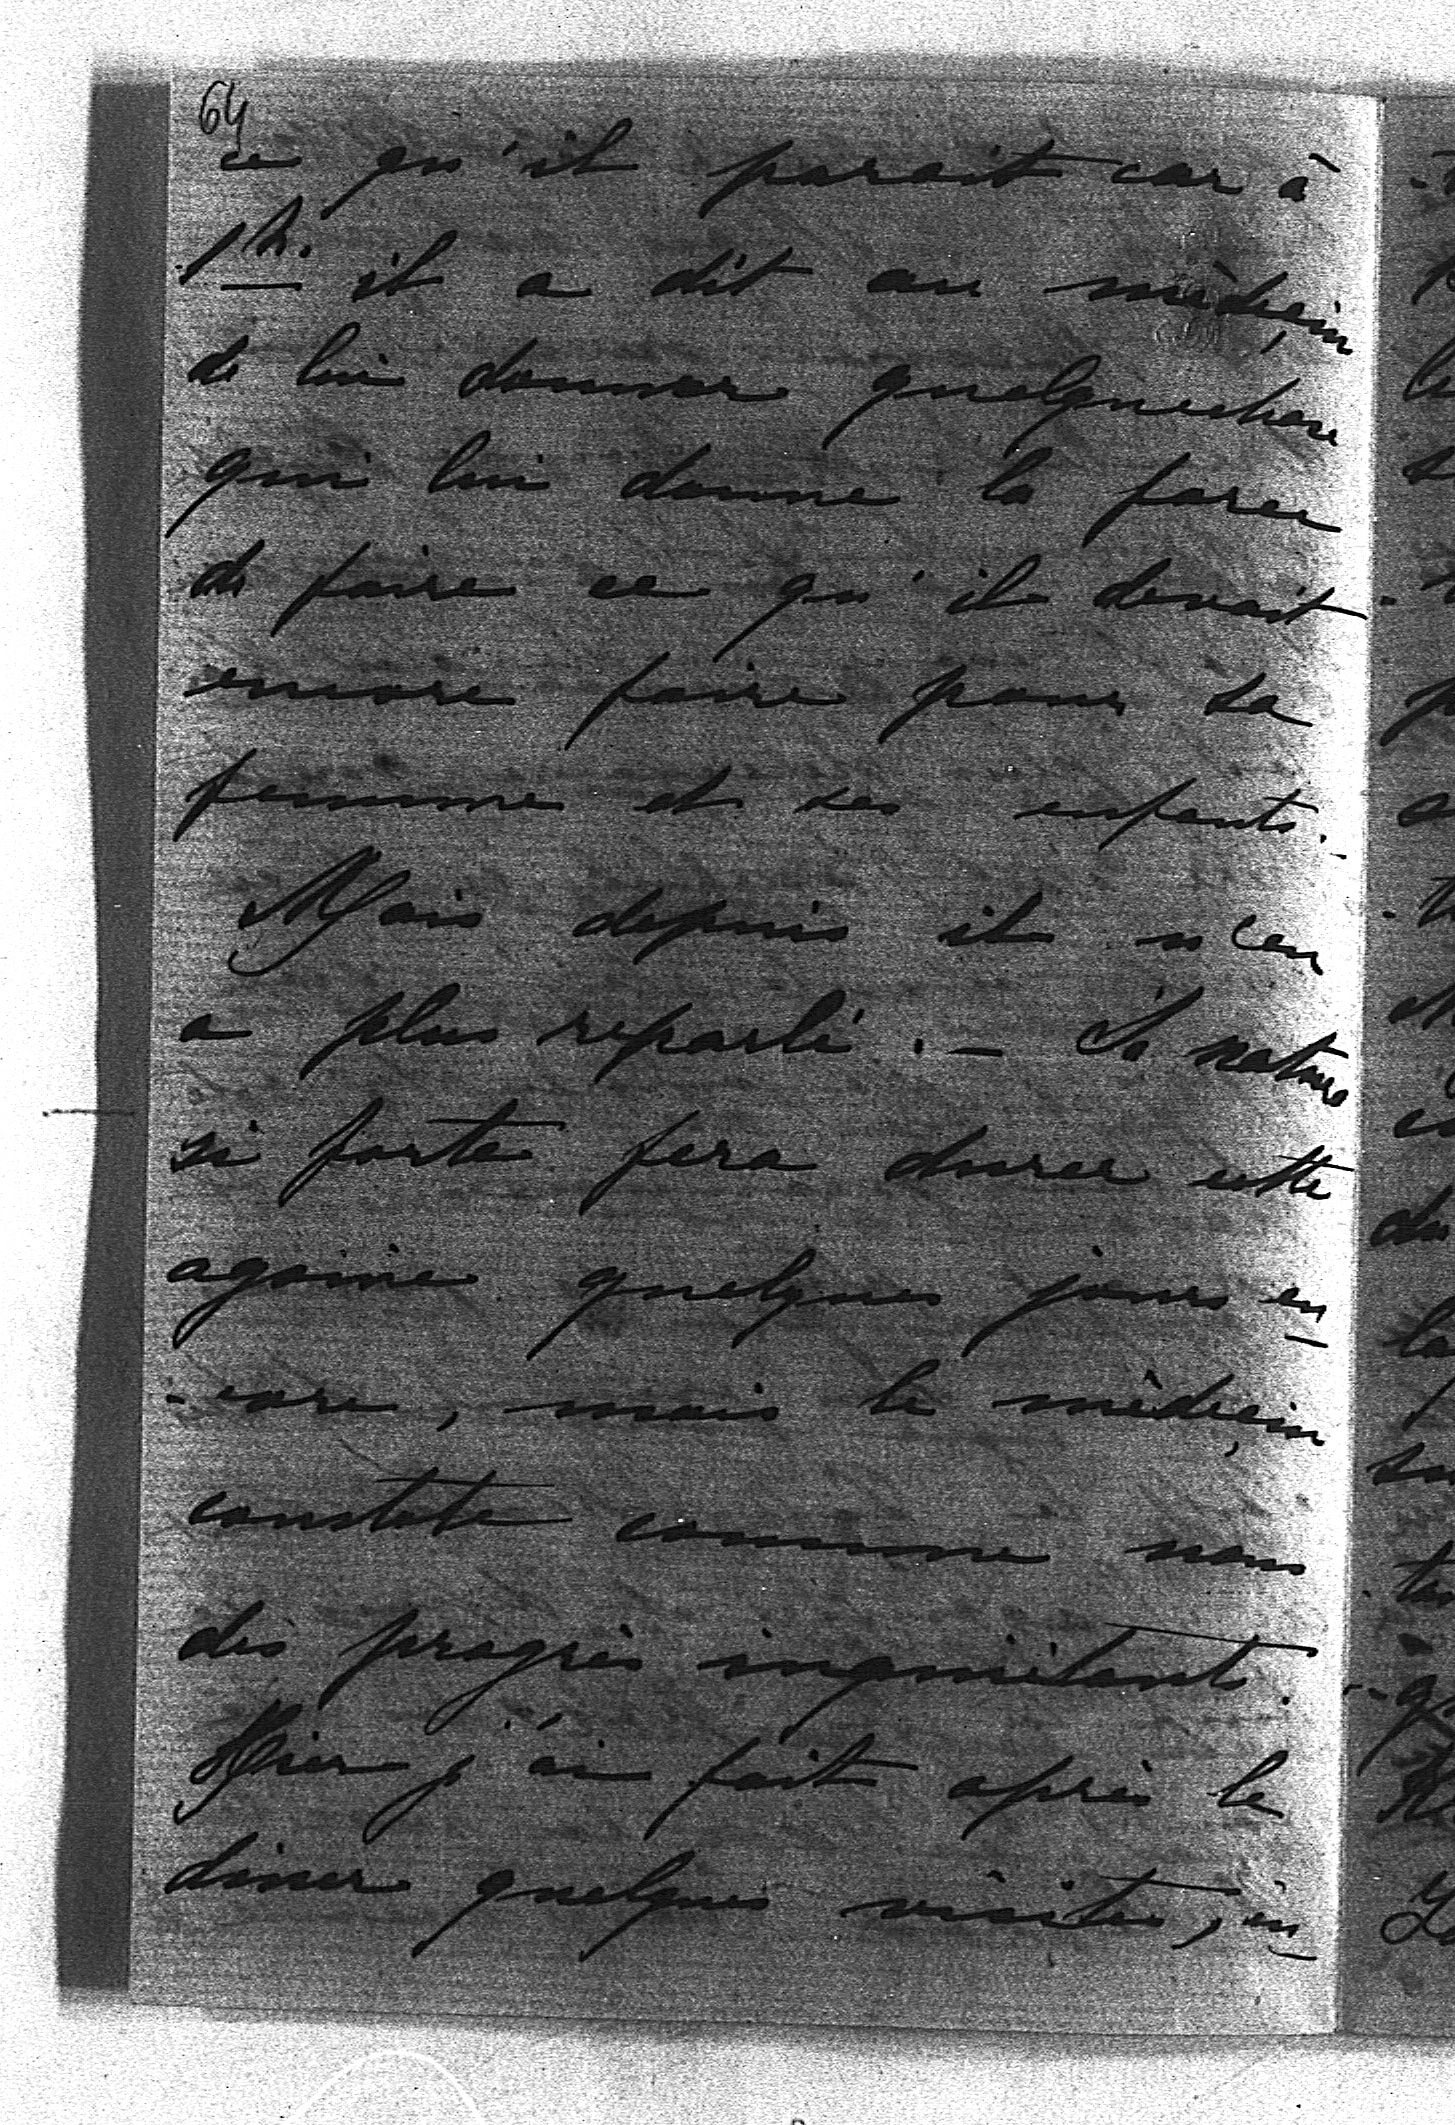 64
ce qu'il parait car à
1h. il a dit au mèdeçin
de lui donner quelquechose
qui lui donne la force
de faire ce qu'il devait
encore faire pour sa
femme et ses enfants.-
Mais depuis il n'en
a plus reparlé.- Sa nature
si forte fera durer cette
agonie quelques jours en
-core, mais le mèdeçin
constate comme nous
des progrès inquiétants.
Hier j'ai fait après le
diner quelques visites, en